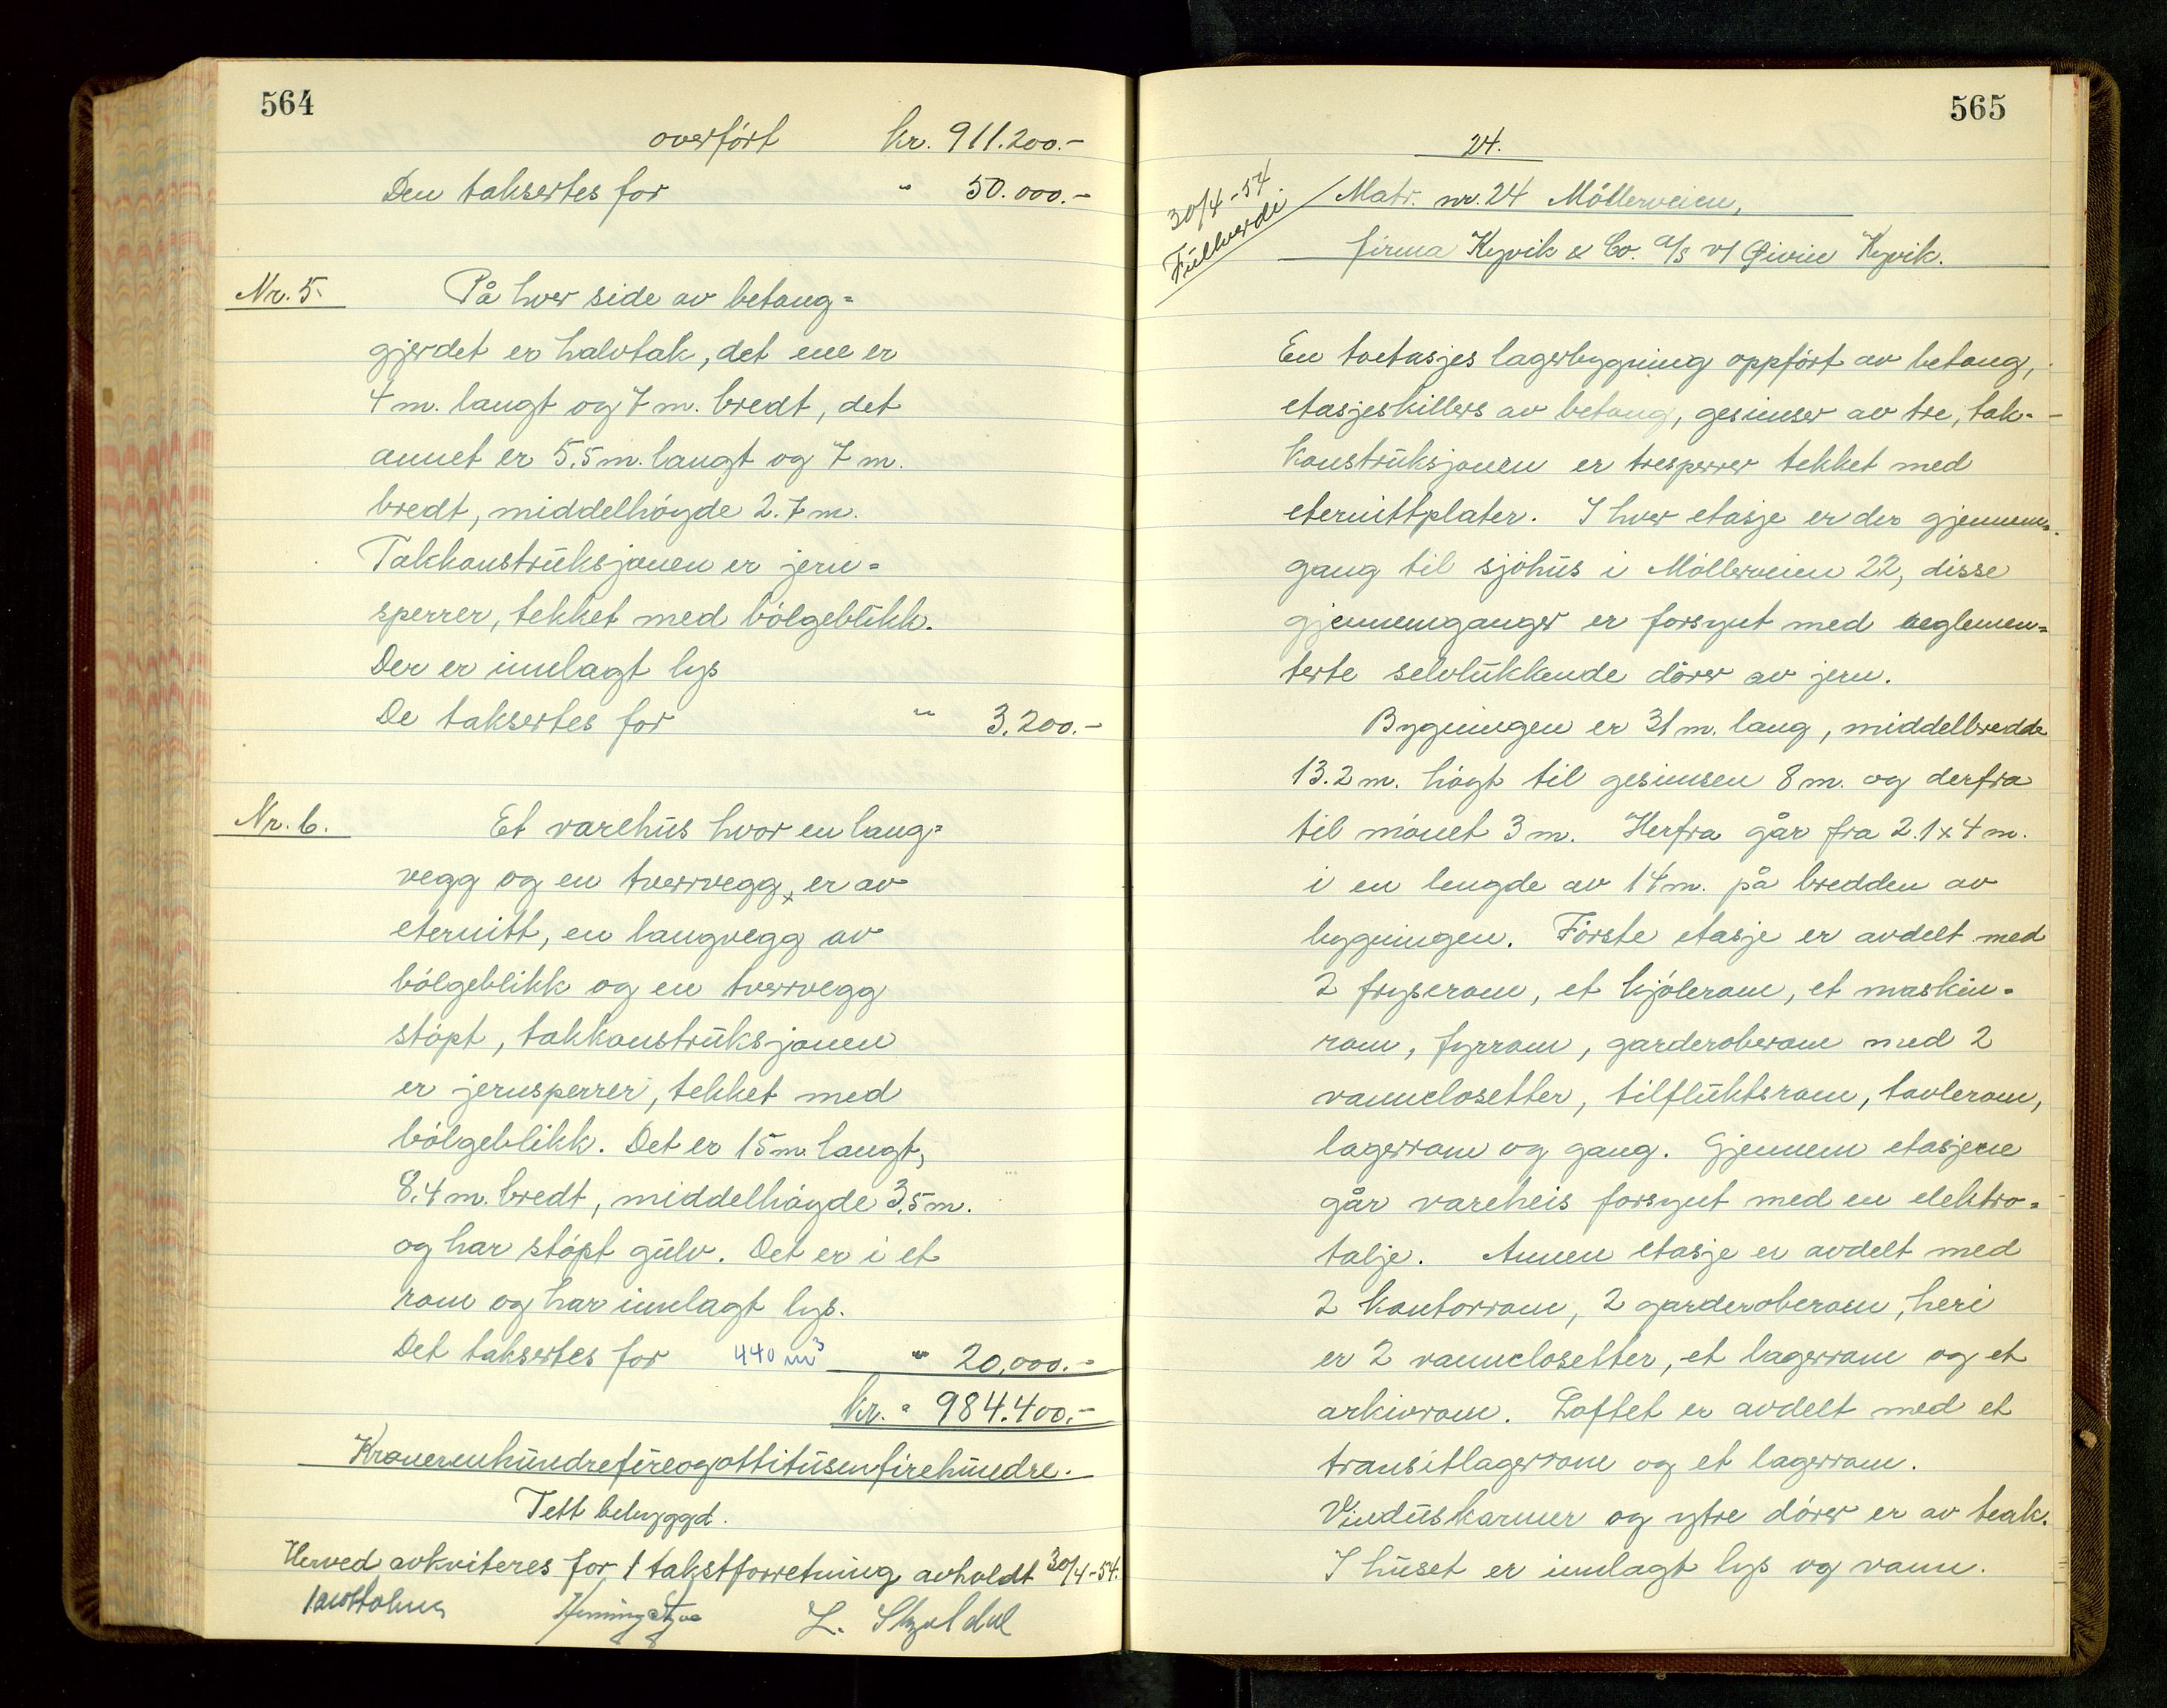 564
overført kr. 911.200.-
Den taksertes for " 50.000.-
Nr. 5. På hver side av betong=
gjerdet er halvtak, det ene er
4 m. langt og 7 m. bredt, det
annet er 5.5 m. langt og 7 m.
bredt, middelhøyde 2.7 m.
Takkonstruksjonen er jern=
sperrer, tekket med bølgeblikk.
Der er innlagt lys
De taksertes for " 3.200.-
Nr. 6. Et varehus hvor en lang=
vegg og en tverrvegg x er av
eternitt, en langvegg av
bølgeblikk og en tverrvegg
støpt, takkonstruksjonen
er jernsperrer, tekket med
bølgeblikk. Det er 15 m. langt,
8.4 m. bredt, middelhøyde 3.5 m.
og har støpt gulv. Det er i et
rom og har innlagt lys.
Det taksertes for 440 m³ " 20.000.-
kr. " 984.400.-
Kronernihundrefireogottitusenfirehundre.
Tett bebyggd.
Herved avkviteres for 1 takstforretning avholdt 30/4-54.
L. Skjoldal
565
24.
30/4-54
Fullverdi
Matr. nr. 24 Møllerveien,
firma Kyvik & Co. A/S v/ Øivin Kyvik.
En toetasjes lagerbygning oppført av betong,
etasjeskillers av betong, gesimser av tre, tak=
konstruksjonen er tresperrer tekket med
eternittplater. I hver etasje er der gjennem=
gang til sjøhus i Møllerveien 22, disse
gjennemganger er forsynt med reglemen=
terte selvlukkende dører av jern.
Bygningen er 31 m. lang, middelbredde
13.2 m. høgt til gesimsen 8 m. og derfra
til mønet 3 m. Herfra går fra 2.1 x 4 m.
i en lengde av 14 m. på bredden av
bygningen. Første etasje er avdelt med
2 fryserom, et kjølerom, et maskin=
rom, fyrrom, garderoberom med 2
vannclosetter, tilfluktsrom, tavlerom,
lagerrom og gang. Gjennem etasjene
går vareheis forsynt med en elektro=
talje. Annen etasje er avdelt med
2 kontorrom, 2 garderoberom, heri
er 2 vannclosetter, et lagerrom og et
arkivrom. Loftet er avdelt med et
transitlagerrom og et lagerrom.
Vinduskarmer og ytre dører er av teak.
I huset er innlagt lys og vann.